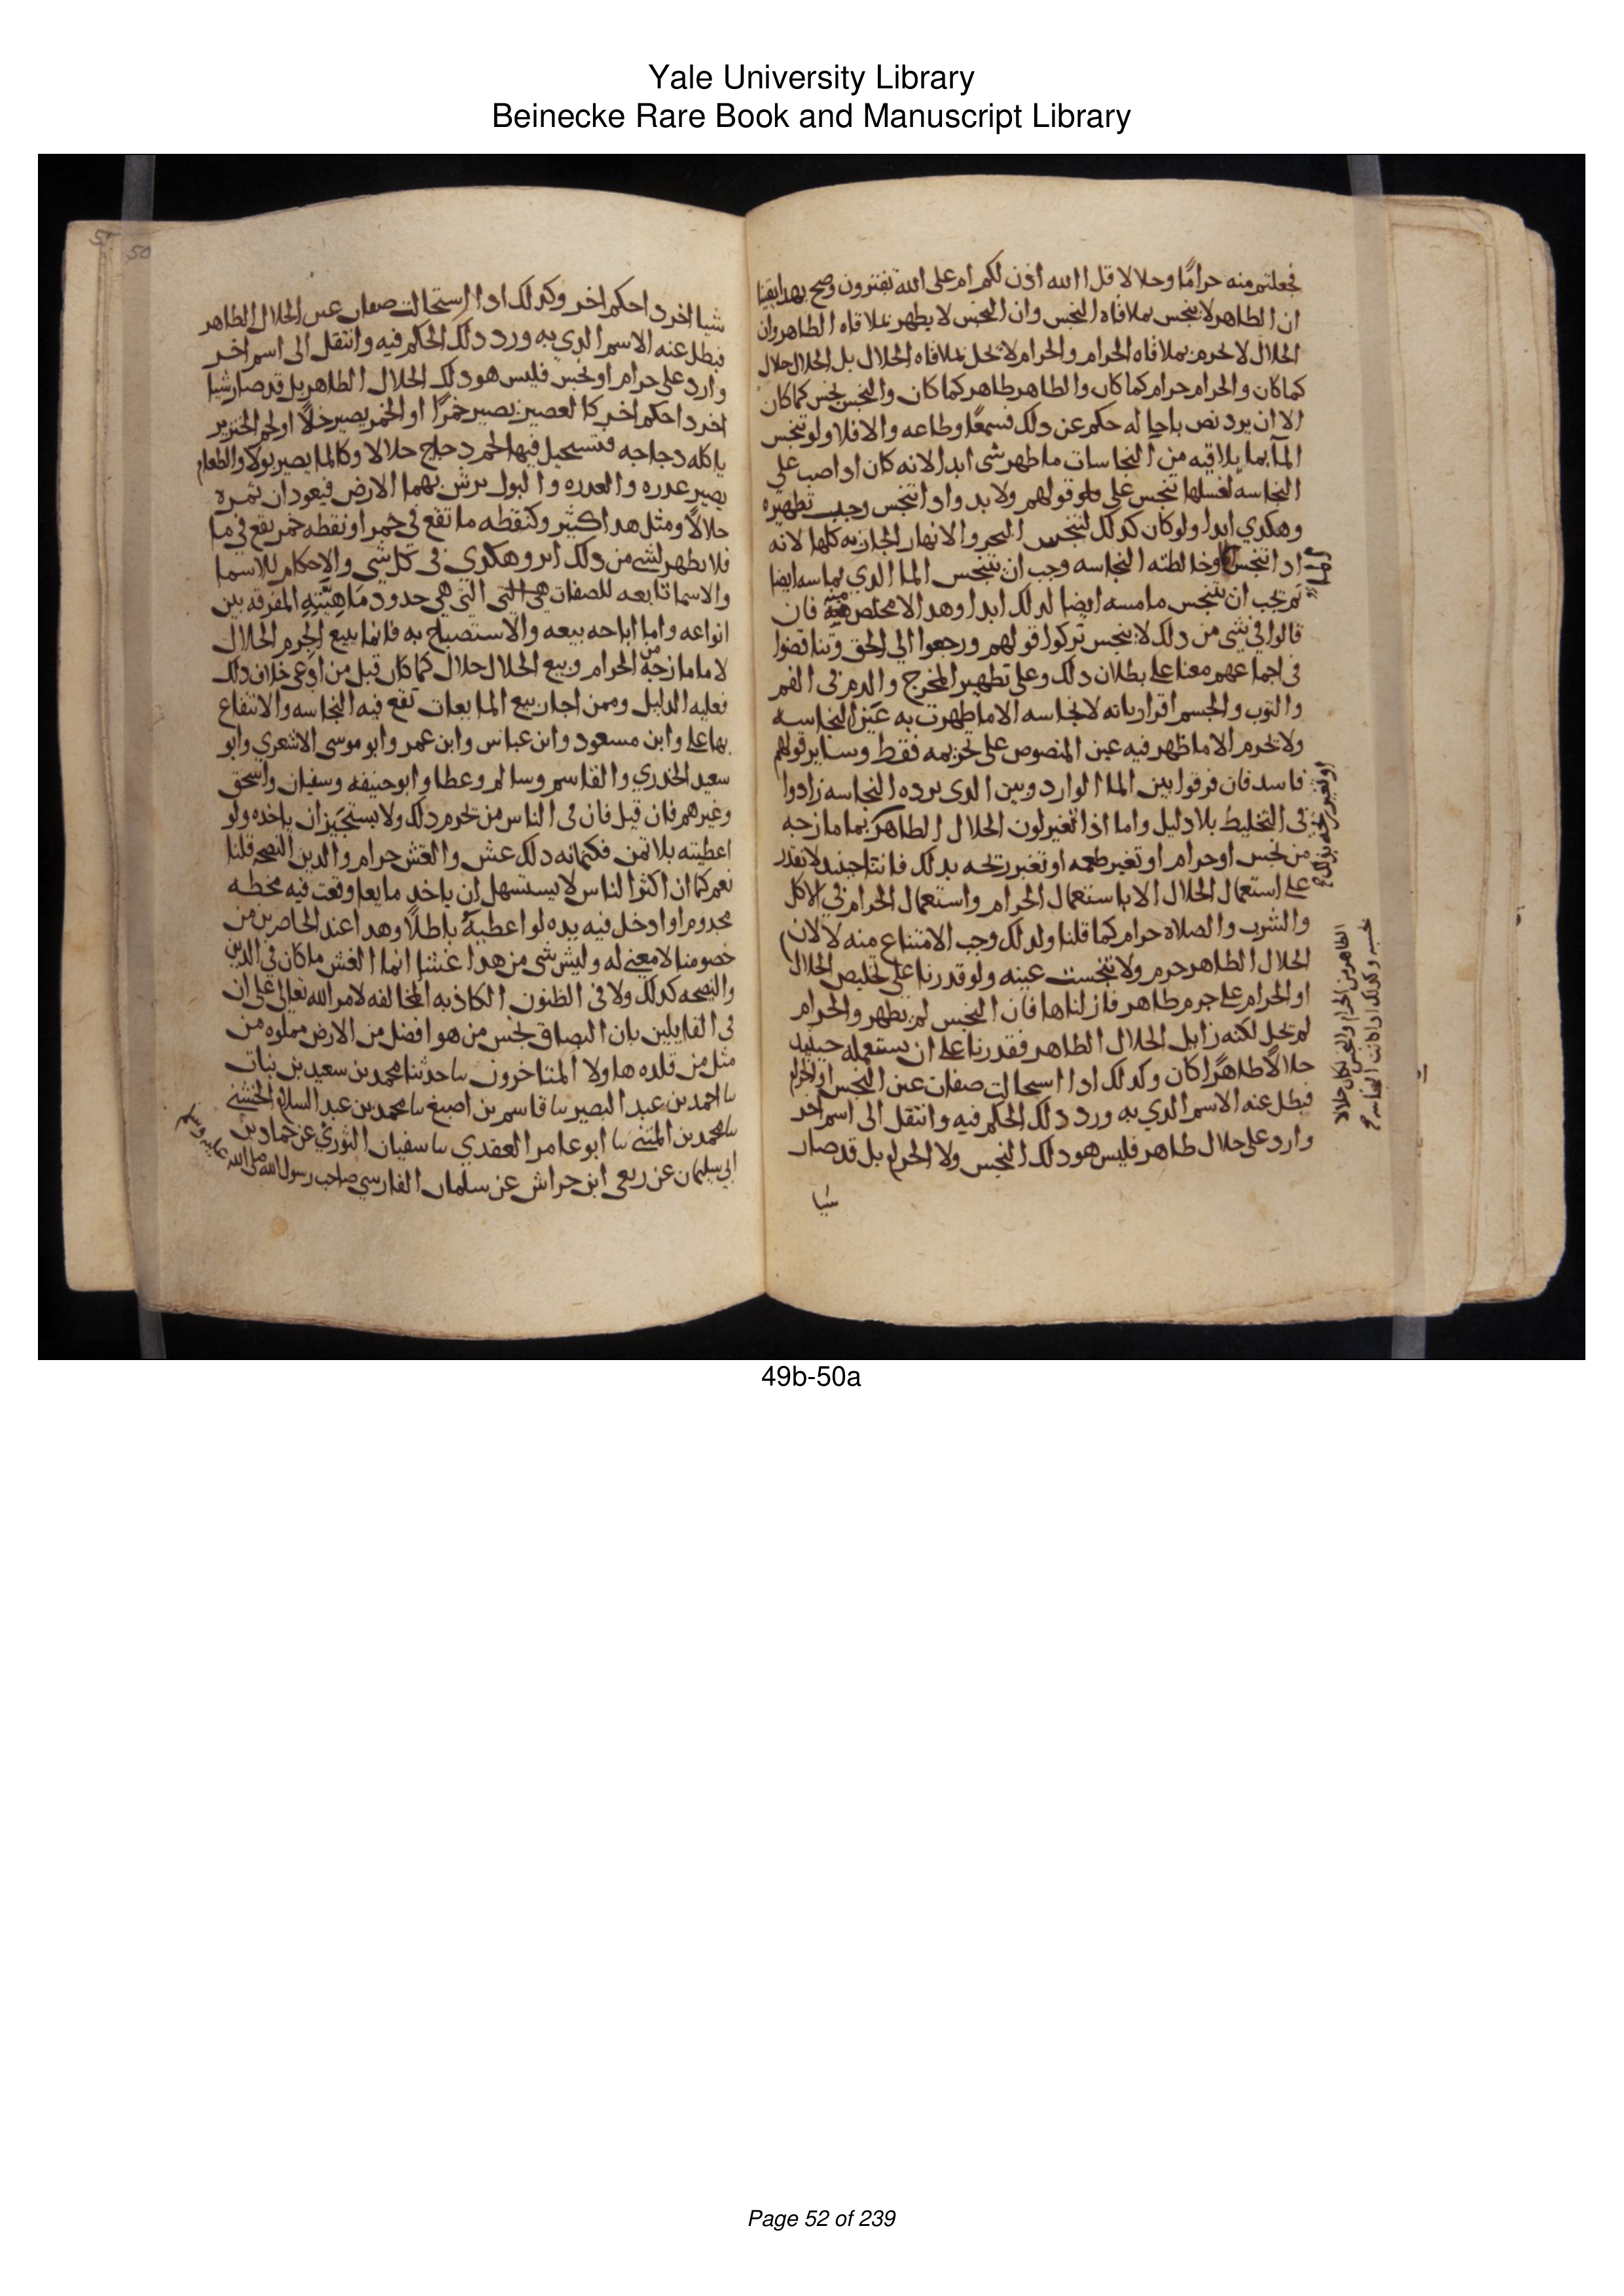 Yale University Library
Beinecke Rare Book and Manuscript Library
فجعلتم منه حرامًا وحلالا قل االله اذن لكم ام على الله تفترون وصح بهدا يقينا
ان الطاهر لا ينجس بملاقاه النجس وان النجس لا يطهر بملاقاه الطاهر وان
الحلال لا يحرم بملاقاه الحرام والحرام لا يحل بملاقاه الحلال بل الحلال حلال
كما كان والحرام حرام كما كان والطاهر طاهر كما كان والنجس نجس كما كان
الا ان يرد نص باحاله حكم عن دلك فسمعًا وطاعه والا فلا ولو تنجس
المآ بما يلاقيه من النجاسات ما طهر شى ابدا لانه كان ادا صب على
النجاسه لغسلها تنجس على قولهم ولا بد وادا تنجس وجب تطهيره
وهكدي ابدا ولو كان كدلك لتنجس البحر والانهار الجاريه كلها لانه
ادا تنجس الما وخالطته النجاسه وجب ان يتنجس الما الدي يماسه ايضا
ثم يجب ان يتنجس ما مسه ايضا لدلك ابدا وهدا لا مخلص منه فان
قالوا في شى من دلك لا يتنجس تركوا قولهم ورجعوا الي الحق وتناقضوا
فى اجماعهم معنا على بطلان دلك وعلى تطهير المخرج والدم فى الفم
والتوب والجسم اقرار بانه لا نجاسه الا ما ظهرت به عين النجاسه
ولا يحرم الا ما ظهر فيه عين المنصوص على تحريمه فقط وساير قولهم
فاسد فان فرقوا بين الما الوارد وبين الدى يرده النجاسه زادوا
فى التخليط بلا دليل واما اذا تغير لون الحلال الطاهر بما مازجه
من نجس او حرام او تغير طعمه او تغير ريحه بدلك فاننا حينيد لا نقدر
على استعمال الحلال الا باستعمال الحرام واستعمال الحرام في الاكل
والشرب والصلاه حرام كما قلنا ولدلك وجب الامتناع منه لا لان
الحلال الطاهر حرم ولا تنجست عينه ولو قدرنا على تخليص الحلال
الطاهر من الحرام والنجس لكان حلالا
بحسبه وكدلك ادا كانت النجاسه
او الحرام على جرم طاهر فازلناها فان النجس لم يطهر والحرام
لم يحل لكنه زايل الحلال الطاهر فقدرنا على ان نستعمله حينيد
حلالاً طاهرًا كان وكدلك ادا استحالت صفات عين النجس او الحرام
فبطل عنه الاسم الدي به ورد دلك الحكم فيه وانتقل الى اسم اخر
وارد على حلال طاهر فليس هو دلك النجس ولا الحرام بل قد صار
شيا
50
شيا اخر دا حكم اخر وكدلك ادا استحالت صفات عين الحلال الطاهر
فبطل عنه الاسم الدي به ورد دلك الحكم فيه وانتقل الى اسم اخر
وارد على حرام او نجس فليس هو دلك الحلال الطاهر بل قد صار شيا
اخر دا حكم اخر كالعصير يصير خمرًا او الخمر يصير خلاً او لحم الخنزير
ياكله دجاجه فتستحيل فيها لحم دجاج حلالا وكالما يصير بولا والطعام
يصير عدره والعدره والبول يرش بهما الارض فيعودان ثمره
حلالاً ومثل هدا كثير وكنقطه ما تقع في خمر او نقطه خمر تقع في ما
فلا يظهر لشى من دلك اثر وهكدى فى كل شى والاحكام للاسما
والاسما تابعه للصفات التي هي حدود ما هي فيه المفرقه بين
انواعه واما اباحه بيعه والاستصباح به فانما بيع الجرم الحلال
لا ما مازجه من الحرام وبيع الحلال حلال كما كان قبل من ادعى خلاف دلك
فعليه الدليل وممن اجاز بيع المايعات تقع فيه النجاسه والانتفاع
بها على وابن مسعود وابن عباس وابن عمر وابو موسى الاشعري وابو
سعيد الخدري والقاسم وسالم وعطا وابو حنيفه وسفيان واسحق
وغيرهم فان قيل فان فى الناس من يحرم دلك ولا يستجيز ان ياخده ولو
اعطيته بلا ثمن فكتمانه دلك غش والغش حرام والدين النصحه قلنا
نعم كما ان اكثر الناس لا يستسهل ان ياخد مايعا وقعت فيه مخطه
مجدوم او ادخل فيه يده لو اعطيه باطلاً وهدا عند الحاضرين من
خصومنا لا معنى له وليس شى من هدا غشا انما الغش ما كان في الدين
والنصحه كدلك ولا فى الظنون الكاذبه المخالفه لامر الله تعالى على ان
فى القايلين بان البصاق نجس من هو افضل من الارض مملوه من
مثل من قلده هاولا المتاخرون نا حدثنا محمد بن سعيد بن نبات
نا احمد بن عبد البصير نا قاسم بن اصبغ نا محمد بن عبد السلام الخشني
نا محمد بن المثنى نا ابو عامر العقدي نا سفيان الثوري عن حماد بن
ابي سليمان عن ربعى ابن حراش عن سلمان الفارسي صاحب رسول الله صلى الله
عليه وسلم
49b-50a
Page 52 of 239